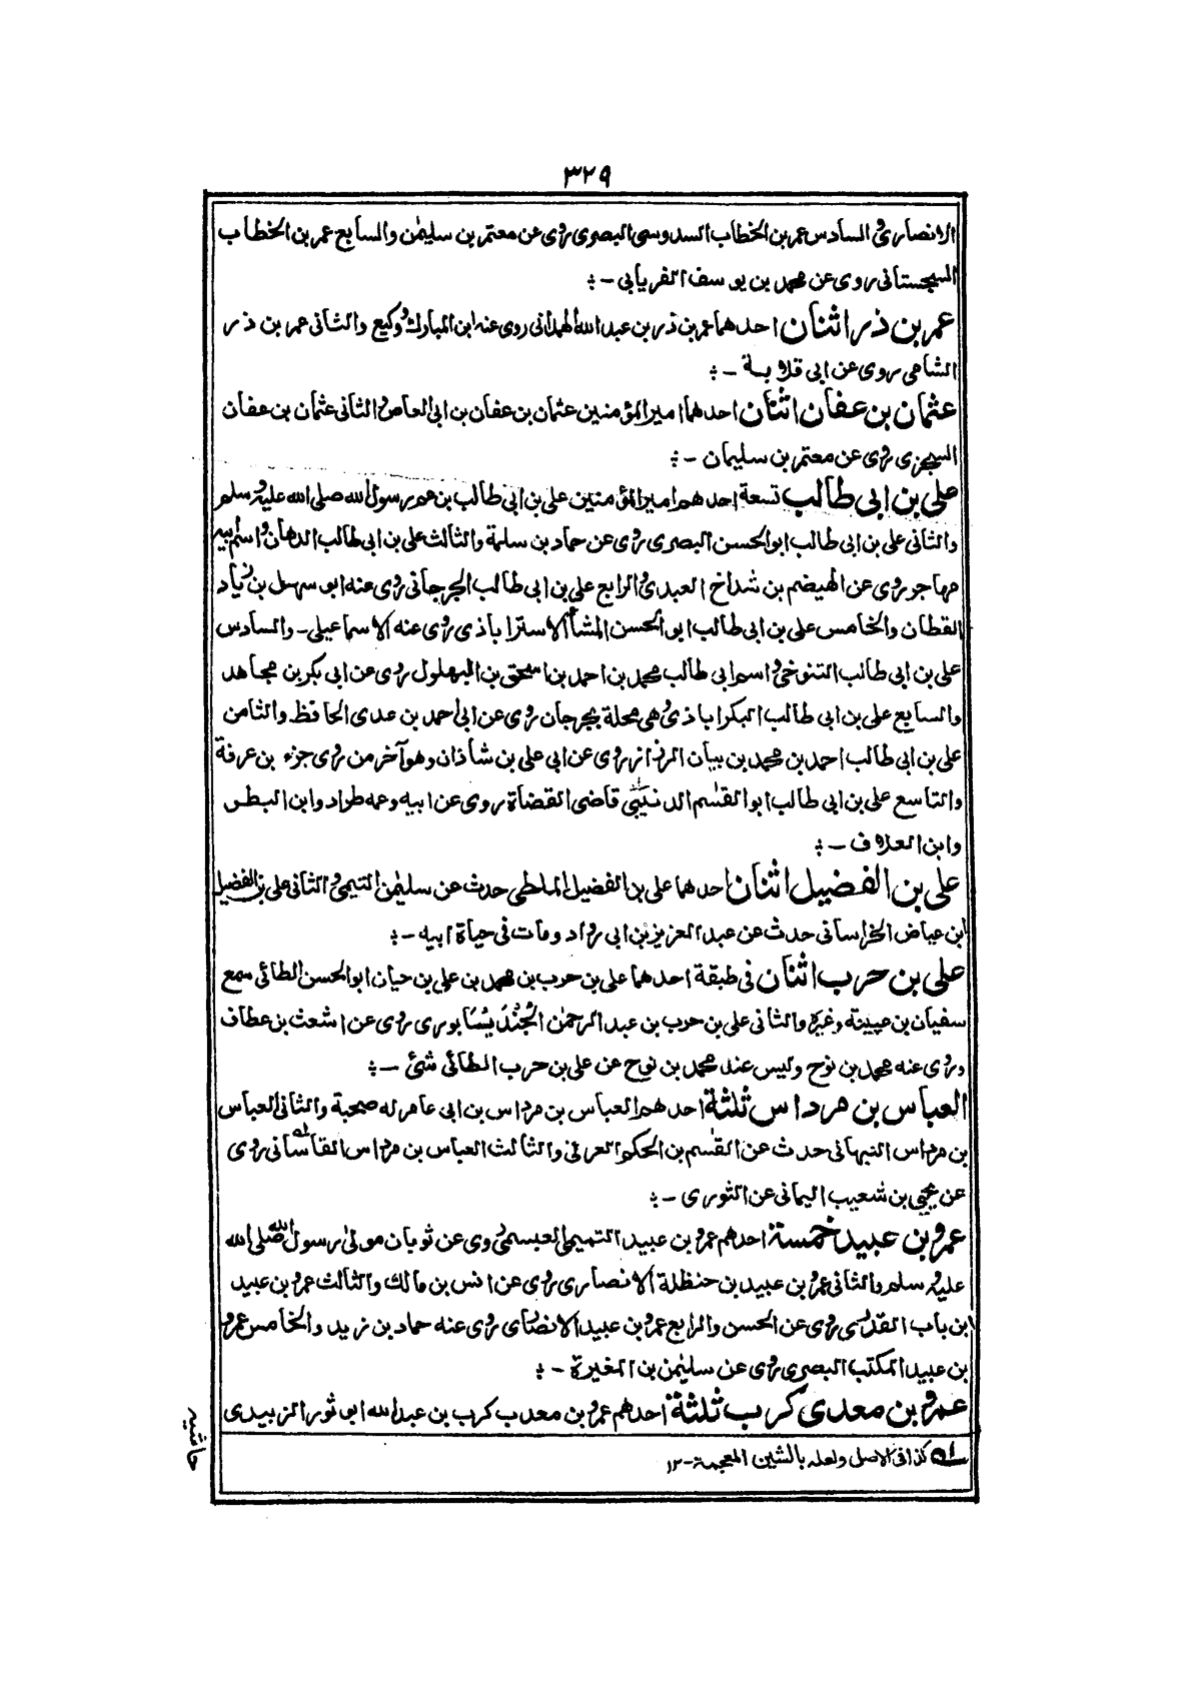 ٣٢٩
الانصاری و السادس عمر بن الخطاب السدوسی البصری روی عن معتمر بن سلیمٰن والسابع عمر بن الخطاب
السجستانی روی عن محمد بن یوسف الفریابی -:
عمر بن ذر اثنان احدهما عمر بن ذر بن عبد الله الهمدانی روی عنه ابن المبارک و وکیع والثانی عمر بن ذر
الشامی روی عن ابی قلابة -:
عثمان بن عفان اثنان احدهما امیر المؤمنین عثمان بن عفان بن ابی العاص و الثانی عثمان بن عفان
السجزی روی عن معتمر بن سلیمان -:
علی بن ابی طالب تسعة احدهم امیر المؤمنین علی بن ابی طالب بن عم رسول الله صلی الله علیه وسلم
والثانی علی بن ابی طالب ابو الحسن البصری روی عن حماد بن سلمة والثالث علی بن ابی طالب الدهان و اسم ابیه
مهاجر روی عن الهیضم بن شداخ العبدی و الرابع علی بن ابی طالب الجرجانی روی عنه ابو سهل بن زیاد
القطان والخامس علی بن ابی طالب ابو الحسن المشا الاستراباذی روی عنه الاسماعیلی - والسادس
علی بن ابی طالب التنوخی و اسم ابی طالب محمد بن احمد بن اسحق بن البهلول روی عن ابی بکر بن مجاهد
والسابع علی بن ابی طالب البکراباذی و هی محلة بجرجان روی عن ابی احمد بن عدی الحافظ والثامن
علی بن ابی طالب احمد بن محمد بن بیان الرزاز روی عن ابی علی بن شاذان وهو آخر من روی جزء بن عرفة
والتاسع علی بن ابی طالب ابو القٰسم قاضی القضاة روی عن ابیه وعمه طراد وابن البطر
وابن العلاف -:
علی بن الفضیل اثنان احدهما علی بن الفضیل الملطی حدث عن سلیمٰن التیمی و الثانی علی بن الفضیل
ابن عیاض الخراسانی حدث عن عبد العزیز بن ابی رواد ومات فی حیاة ابیه -:
علی بن حرب اثنان فی طبقة احدهما علی بن حرب بن محمد بن علی بن حیان ابو الحسن الطائی سمع
سفیان بن عیینة وغیره والثانی علی بن حرب بن عبد الرحمٰن الجُنْدَیْسَابوری روی عن اشعث بن عطاف
وروی عنه محمد بن نوح ولیس عند محمد بن نوح عن علی بن حرب الطائی شئ -:
العباس بن مرداس ثلٰثة احدهم العباس بن مرداس بن ابی عامر له صحبة والثانی العباس
بن مرداس النبهانی حدث عن القٰسم بن الحکم العرنی والثالث العباس بن مرداس القاسانی روی
عن یحیی بن شعیب الیمانی عن الثوری -:
عمرو بن عبید خمسة احدهم عمرو بن عبید التمیمی العبسمی روی عن ثوبان مولیٰ رسول الله صلی الله
علیه وسلم والثانی عمرو بن عبید بن حنظلة الانصاری روی عن انس بن مالک والثالث عمرو بن عبید
ابن باب القدسی روی عن الحسن والرابع عمرو بن عبید الانصاری روی عنه حماد بن زید والخامس عمرو
بن عبید المکتب البصری روی عن سلیمٰن بن المغیرة -:
عمرو بن معدی کرب ثلٰثة احدهم عمرو بن معدب کرب بن عبد الله ابو ثور الزبیدی
حاشیه
۱ه کذا فی الاصل ولعله بالشین المعجمة-۱۲